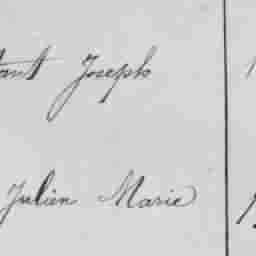 Joseph
Julien Marie